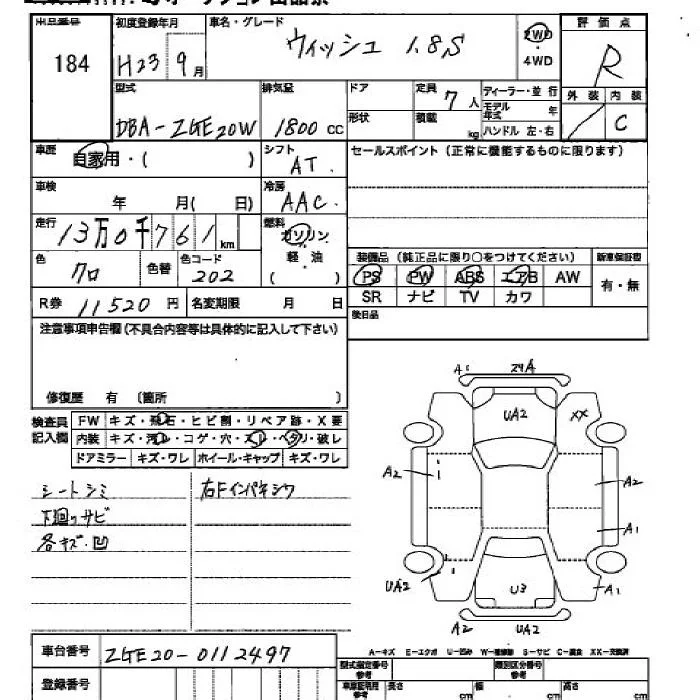 出品番号 初度登録年月 車名・グレード 2WD 評 価 点
184 H23年 9月 ウィッシュ 1.8S ・4WD R
型式 排気量 ドア 定員 7人 ディーラー・並 行 外 装 内 装
モデル年式 年
DBA-ZGE20W 1800cc 形状 積載 kg ハンドル 左・右 / C
車歴 自家用・( ) シフト AT セールスポイント (正常に機能するものに限ります)
車検 年 月( 日) 冷房 AAC
走行 13万0千761km 燃料 ガソリン
軽・油
( )
色 クロ 色替 色コード 202
装備品 (純正品に限り○をつけてください) 新車保証書
PS PW ABS エアB AW 有・無
SR ナビ TV カワ
R券 11520円 名変期限 月 日 後日品
注意事項申告欄(不具合内容等は具体的に記入して下さい)
修復歴 有 (箇所 )
検査員記入欄 FW キズ・飛石・ヒビ割・リペア跡・X要
内装 キズ・汚レ・コゲ・穴・スレ・ヘタリ・破レ
ドアミラー キズ・ワレ ホイール・キャップ キズ・ワレ
シートシミ 右Fインパネシワ
下廻りサビ
各キズ・凹
A1 24A
UA2 XX
A2 A2
A1
UA2 U3 A1
A2 UA2
A-キズ E-エクボ U-凹み W-補修跡 S-サビ C-腐食 XX-交換済
車台番号 ZGE20-0112497
登録番号
型式指定番号 参考 類別区分番号 参考
車庫証明用 参考 長さ cm 幅 cm 高さ cm